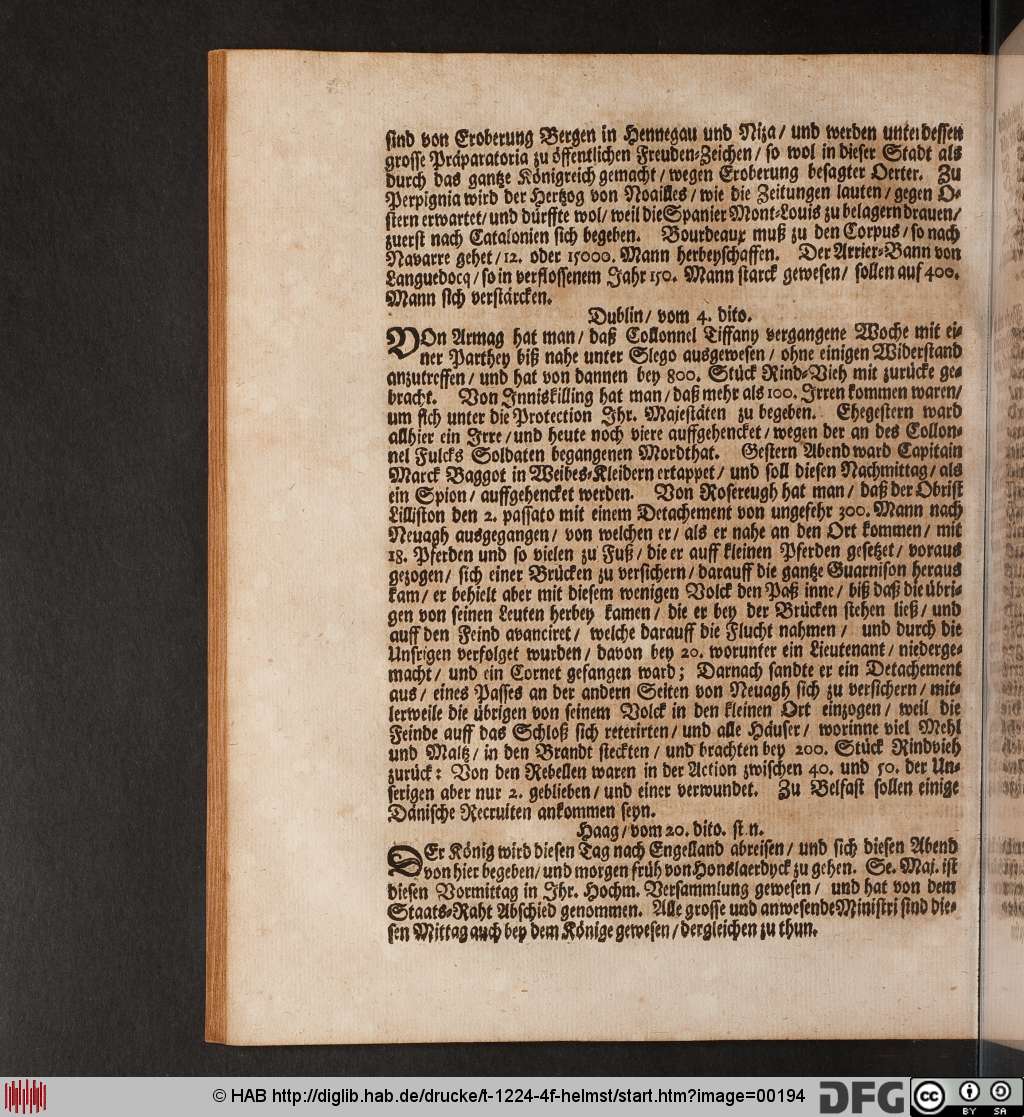 sind von Eroberung Bergen in Hennegau und Niza / und werden unterdessen
grosse Präparatoria zu öffentlichen Freuden-Zeichen / so wol in dieser Stadt als
durch das gantze Königreich gemacht / wegen Eroberung besagter Oerter. Zu
Perpignia wird der Hertzog von Noailles / wie die Zeitungen lauten / gegen O-
stern erwartet / und dürffte wol / weil die Spanier Mont-Louis zu belagern drauen /
zuerst nach Catalonien sich begeben. Bourdeaux muß zu den Corpus / so nach
Navarre gehet / 12. oder 15000. Mann herbeyschaffen. Der Arrier-Bann von
Languedocq / so in verflossenem Jahr 150. Mann starck gewesen / sollen auf 400.
Mann sich verstärcken.
Dublin / vom 4. dito.
VOn Armag hat man / daß Collonnel Tiffany vergangene Woche mit ei-
ner Parthey biß nahe unter Slego ausgewesen / ohne einigen Widerstand
anzutreffen / und hat von dannen bey 800. Stück Rind-Vieh mit zurücke ge-
bracht. Von Inniskilling hat man / daß mehr als 100. Irren kommen waren /
um sich unter die Protection Ihr. Majestäten zu begeben. Ehegestern ward
allhier ein Irre / und heute noch viere auffgehencket / wegen der an des Collon-
nel Fulcks Soldaten begangenen Mordthat. Gestern Abend ward Capitain
Marck Baggot in Weibes-Kleidern ertappet / und soll diesen Nachmittag / als
ein Spion / auffgehencket werden. Von Rosereugh hat man / daß der Obrist
Lilliston den 2. passato mit einem Detachement von ungefehr 300. Mann nach
Neuagh ausgegangen / von welchen er / als er nahe an den Ort kommen / mit
18. Pferden und so vielen zu Fuß / die er auff kleinen Pferden gesetzet / voraus
gezogen / sich einer Brücken zu versichern / darauff die gantze Guarnison heraus
kam / er behielt aber mit diesem wenigen Volck den Paß inne / biß daß die übri-
gen von seinen Leuten herbey kamen / die er bey der Brücken stehen ließ / und
auff den Feind avanciret / welche darauff die Flucht nahmen / und durch die
Unsrigen verfolget wurden / davon bey 20. worunter ein Lieutenant / niederge-
macht / und ein Cornet gefangen ward; Darnach sandte er ein Detachement
aus / eines Passes an der andern Seiten von Neuagh sich zu versichern / mit-
lerweile die übrigen von seinem Volck in den kleinen Ort einzogen / weil die
Feinde auff das Schloß sich reterirten / und alle Häuser / worinne viel Mehl
und Maltz / in den Brandt steckten / und brachten bey 200. Stück Rindvieh
zurück: Von den Rebellen waren in der Action zwischen 40. und 50. der Un-
serigen aber nur 2. geblieben / und einer verwundet. Zu Belfast sollen einige
Dänische Recruiten ankommen seyn.
Haag / vom 20. dito. st. n.
DEr König wird diesen Tag nach Engelland abreisen / und sich diesen Abend
von hier begeben / und morgen früh von Honslaerdyck zu gehen. Se. Maj. ist
diesen Vormittag in Ihr. Hochm. Versammlung gewesen / und hat von dem
Staats-Raht Abschied genommen. Alle grosse und anwesende Ministri sind die-
sen Mittag auch bey dem Könige gewesen / dergleichen zu thun.
© HAB http://diglib.hab.de/drucke/t-1224-4f-helmst/start.htm?image=00194
DFG
cc BY SA